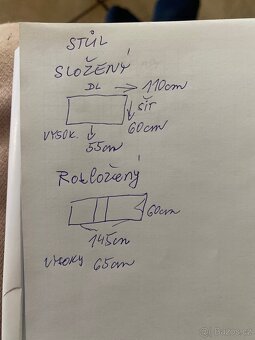 STŮL
SLOŽENÝ
DL → 110cm
ŠÍŘ
60cm
VYSOK.
55cm
ROZLOŽENÝ
60cm
145cm
VYSOKÝ 65cm
Bazos.cz